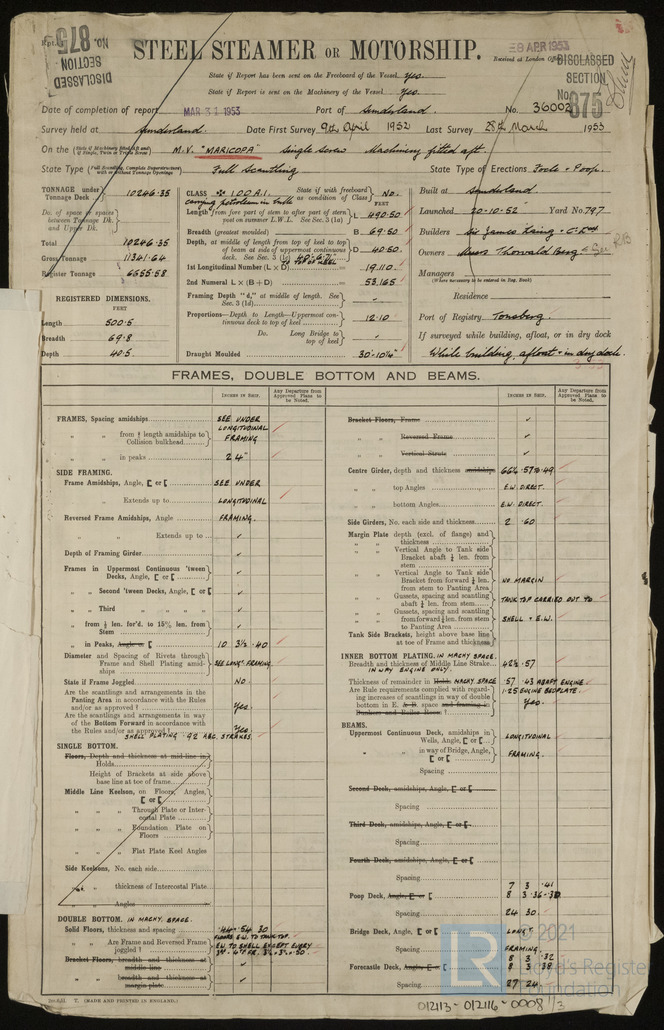 DISCLASSED
SECTION
No. 875
STEEL STEAMER OR MOTORSHIP.
8 APR 1953
Received at London Office
DISCLASSED
SECTION
No 875
State if Report has been sent on the Freeboard of the Vessel Yes.
State if Report is sent on the Machinery of the Vessel Yes.
Date of completion of report MAR 31 1953 Port of Sunderland. No. 36002
Survey held at Sunderland. Date First Survey 9th April 1952 Last Survey 28th March 1953
On the M.V. "MARICOPA" Single Screw Machinery fitted aft.
State Type Full Scantling State Type of Erections Focle & Poop.
TONNAGE under Tonnage Deck 10246.35
Do. of space or spaces between Tonnage Dk. and Upper Dk.
Total 10246.35
Gross Tonnage 11341.64
Register Tonnage 6555.58
REGISTERED DIMENSIONS.
FEET
Length 500.5
Breadth 69.8
Depth 40.5
CLASS 100 A.1. State if with freeboard as condition of Class No.
carrying petroleum in bulk
FEET
Length from fore part of stem to after part of stern post on summer L.W.L. See Sec. 3 (1a) L 490.50
Breadth (greatest moulded) B 69.50
Depth, at middle of length from top of keel to top of beam at side of uppermost continuous deck. See Sec. 3 (1a) D 40.50
1st Longitudinal Number (L × D) 19,110
2nd Numeral L × (B + D) 53,165
Framing Depth "d," at middle of length. See Sec. 3 (1d)
Proportions—Depth to Length—Uppermost continuous deck to top of keel 12.10
Do. Long Bridge to top of keel
Draught Moulded
Built at Sunderland
Launched 20-10-52 Yard No. 797
Builders Sir James Laing & Co. Ltd
Owners Messrs Thorvald Berg
Managers
(Where necessary to be entered in Reg. Book)
Residence
Port of Registry Tonsberg.
If surveyed while building, afloat, or in dry dock
While building, afloat & in dry dock.
FRAMES, DOUBLE BOTTOM AND BEAMS.
INCHES IN SHIP.
Any Departure from Approved Plans to be Noted.
INCHES IN SHIP.
Any Departure from Approved Plans to be Noted.
FRAMES, Spacing amidships SEE UNDER
LONGITUDINAL
" " from ⅗ length amidships to Collision bulkhead FRAMING
" " in peaks 24"
SIDE FRAMING.
Frame Amidships, Angle, [ or [ SEE UNDER
" " Extends up to LONGITUDINAL
Reversed Frame Amidships, Angle FRAMING.
" " Extends up to
Depth of Framing Girder
Frames in Uppermost Continuous 'tween Decks, Angle, [ or [
" Second 'tween Decks, Angle, [ or [
" Third " " " "
" from ⅕ len. for'd. to 15% len. from Stem
" in Peaks, Angle or [ 10 3½ .40
Diameter and Spacing of Rivets through Frame and Shell Plating amidships SEE LONGL FRAMING.
State if Frame Joggled No.
Are the scantlings and arrangements in the Panting Area in accordance with the Rules and/or as approved? Yes.
Are the scantlings and arrangements in way of the Bottom Forward in accordance with the Rules and/or as approved? Yes.
SHELL PLATING .92 ABC. STRAKES.
SINGLE BOTTOM.
Floors, Depth and thickness at mid-line in Holds
Height of Brackets at side above base line at toe of frame
Middle Line Keelson, on Floors, Angles, [ or [
" " Through Plate or Intercostal Plate
" " Foundation Plate on Floors
" " Flat Plate Keel Angles
Side Keelsons, No. each side
" " thickness of Intercostal Plate
" " Angles
DOUBLE BOTTOM. IN MACHY. SPACE.
Solid Floors, thickness and spacing .44 .54 30
FLOORS E.W. TO TANK TOP.
" Are Frame and Reversed Frame joggled? E.W. TO SHELL EXCEPT EVERY
Bracket Floors, breadth and thickness at middle line
" breadth and thickness at margin plate
Bracket Floors, Frame
" " Reversed Frame
" " Vertical Struts
Centre Girder, depth and thickness amidships 66½ .57 & .49
" " top Angles E.W. DIRECT.
" " bottom Angles E.W. DIRECT.
Side Girders, No. each side and thickness 2 .60
Margin Plate depth (excl. of flange) and thickness
" " Vertical Angle to Tank side Bracket abaft ¼ len. from stem
" " Vertical Angle to Tank side Bracket from forward ¼ len. from stem to Panting Area NO MARGIN
" " Gussets, spacing and scantling abaft ¼ len. from stem TANK TOP CARRIED OUT TO
" " Gussets, spacing and scantling from forward ¼ len. from stem to Panting Area SHELL & E.W.
Tank Side Brackets, height above base line at toe of Frame and thickness
INNER BOTTOM PLATING. IN MACHY SPACE.
Breadth and thickness of Middle Line Strake 42½ .57
IN WAY ENGINE ONLY.
Thickness of remainder in Holds MACHY SPACE .57 .43 ABAFT ENGINE
1.25 ENGINE BEDPLATE.
Are Rule requirements complied with regarding increases of scantlings in way of double bottom in E. & B. space and framing in Bunkers and Boiler Room? Yes.
BEAMS.
Uppermost Continuous Deck, amidships in Wells, Angle, [ or [ LONGITUDINAL
" " in way of Bridge, Angle, [ or [ FRAMING.
Spacing
Second Deck, amidships, Angle, [ or [
Spacing
Third Deck, amidships, Angle, [ or [
Spacing
Fourth Deck, amidships, Angle, [ or [
Spacing 7 3 .41
Poop Deck, Angle, [ or [ 8 3 .36
Spacing 24 30
Bridge Deck, Angle, [ or [ LONGL
Spacing FRAMING.
8 3 .32
Forecastle Deck, Angle, [ or [ 8 3 .38
Spacing 27 24
LR © 2021
Lloyd's Register
Foundation
(MADE AND PRINTED IN ENGLAND.)
012113-012116-0008 1/3